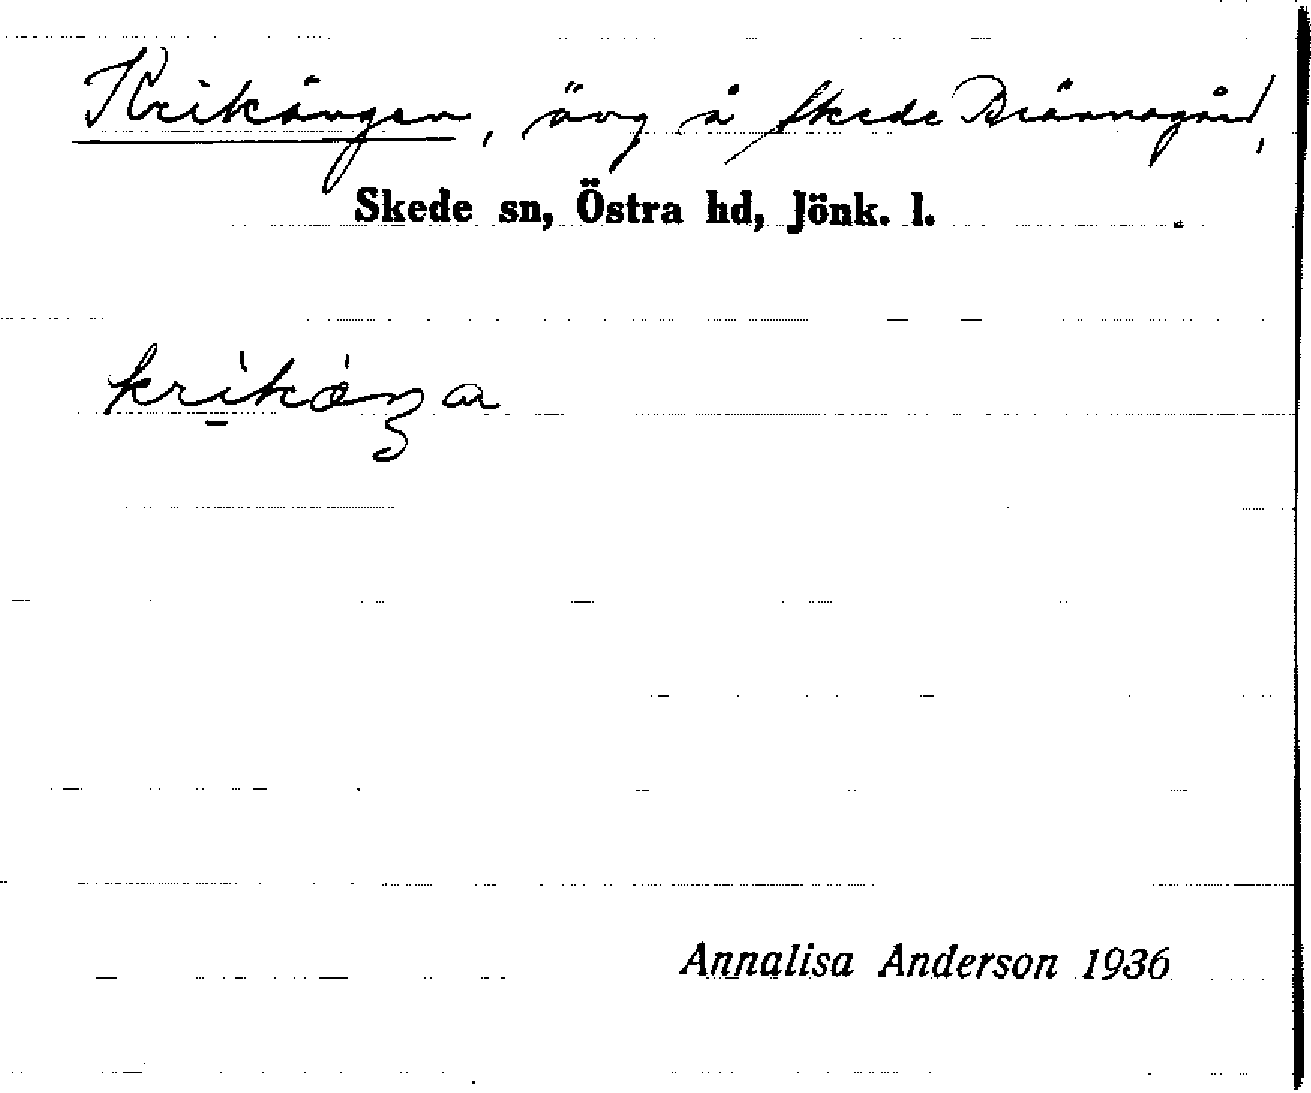 Krikängen, äng å Skede Brännagård,
Skede sn, Östra hd, Jönk. l.
Annalisa Anderson 1936